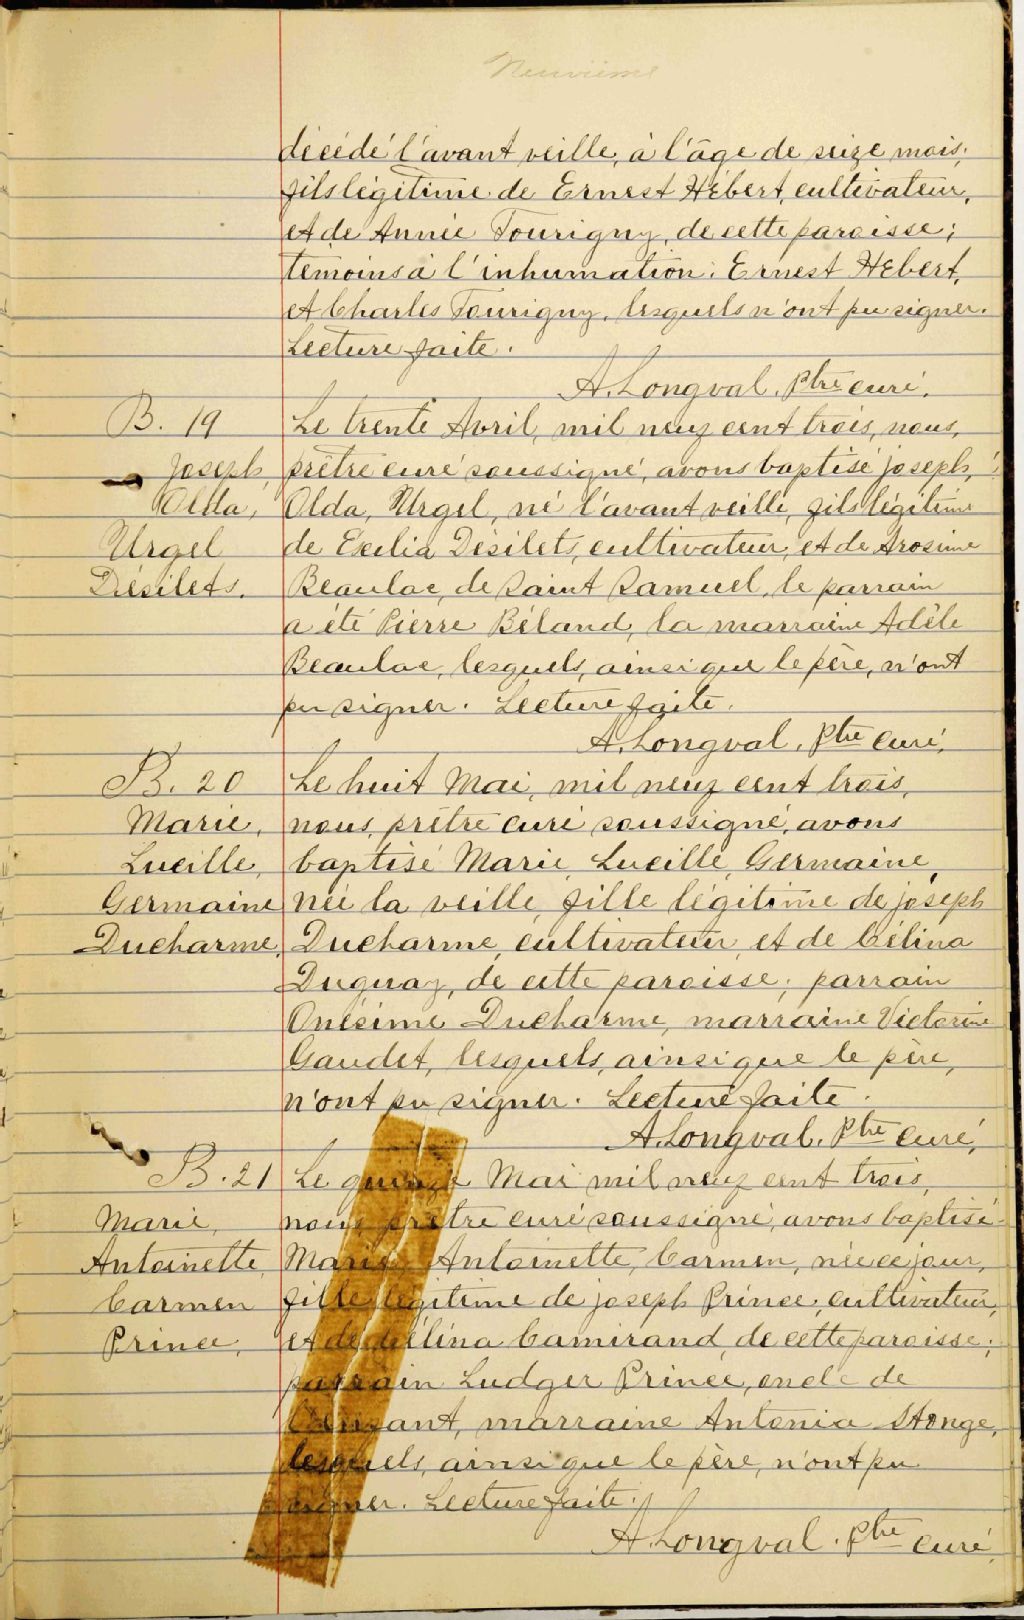 Neuvième
décédé l'avant veille, à l'âge de seize mois,
fils légitime de Ernest Hébert, cultivateur,
et de Annie Tourigny, de cette paroisse;
témoins à l'inhumation: Ernest Hébert,
et Charles Tourigny, lesquels n'ont pu signer.
Lecture faite.
A. Longval, Ptre curé.
B. 19
Joseph,
Olda,
Urgel
Désilets.
Le trente Avril, mil neuf cent trois, nous,
prêtre curé soussigné, avons baptisé joseph,
Olda, Urgel, né l'avant veille, fils légitime
de Exelia Désilets, cultivateur, et de Arosime
Beaulac, de Saint Samuel, le parrain
a été Pierre Béland, la marraine Adèle
Beaulac, lesquels, ainsi que le père, n'ont
pu signer. Lecture faite.
A. Longval, Ptre curé,
B. 20
Marie,
Lucille,
Germaine
Ducharme,
Le huit Mai, mil neuf cent trois,
nous, prêtre curé soussigné, avons
baptisé Marie, Lucille, Germaine,
née la veille, fille légitime de joseph
Ducharme, cultivateur, et de Célina
Duguay, de cette paroisse; parrain
Onésime Ducharme, marraine Victorine
Gaudet, lesquels, ainsi que le père,
n'ont pu signer. Lecture faite.
A. Longval, Ptre curé,
B. 21
Marie,
Antoinette,
Carmen
Prince,
Le quinze Mai mil neuf cent trois,
nous, prêtre curé soussigné, avons baptisé
Marie, Antoinette, Carmen, née ce jour,
fille légitime de joseph Prince, cultivateur,
et de Célina Camirand, de cette paroisse;
parrain Ludger Prince, oncle de
l'enfant, marraine Antonia Stonge,
lesquels, ainsi que le père, n'ont pu
signer. Lecture faite.
A. Longval, Ptre curé,